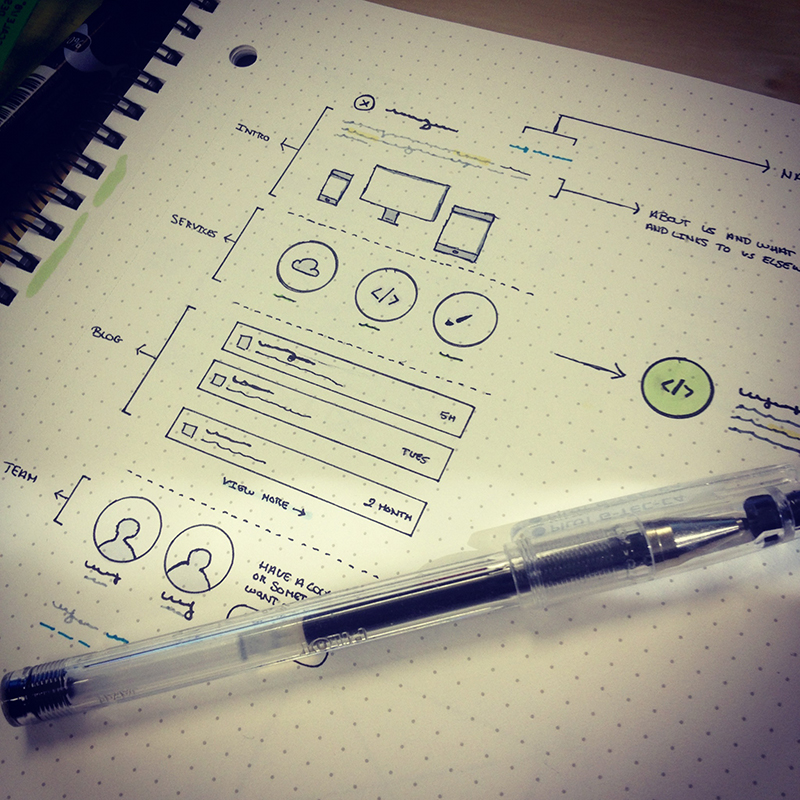 INTRO
ABOUT US AND WHAT
AND LINKS TO US
SERVICES
</>
</>
BLOG
5H
TUES
2 MONTH
VIEW MORE →
TEAM
HAVE A
OR
WANT
PILOT G-TEC-C4